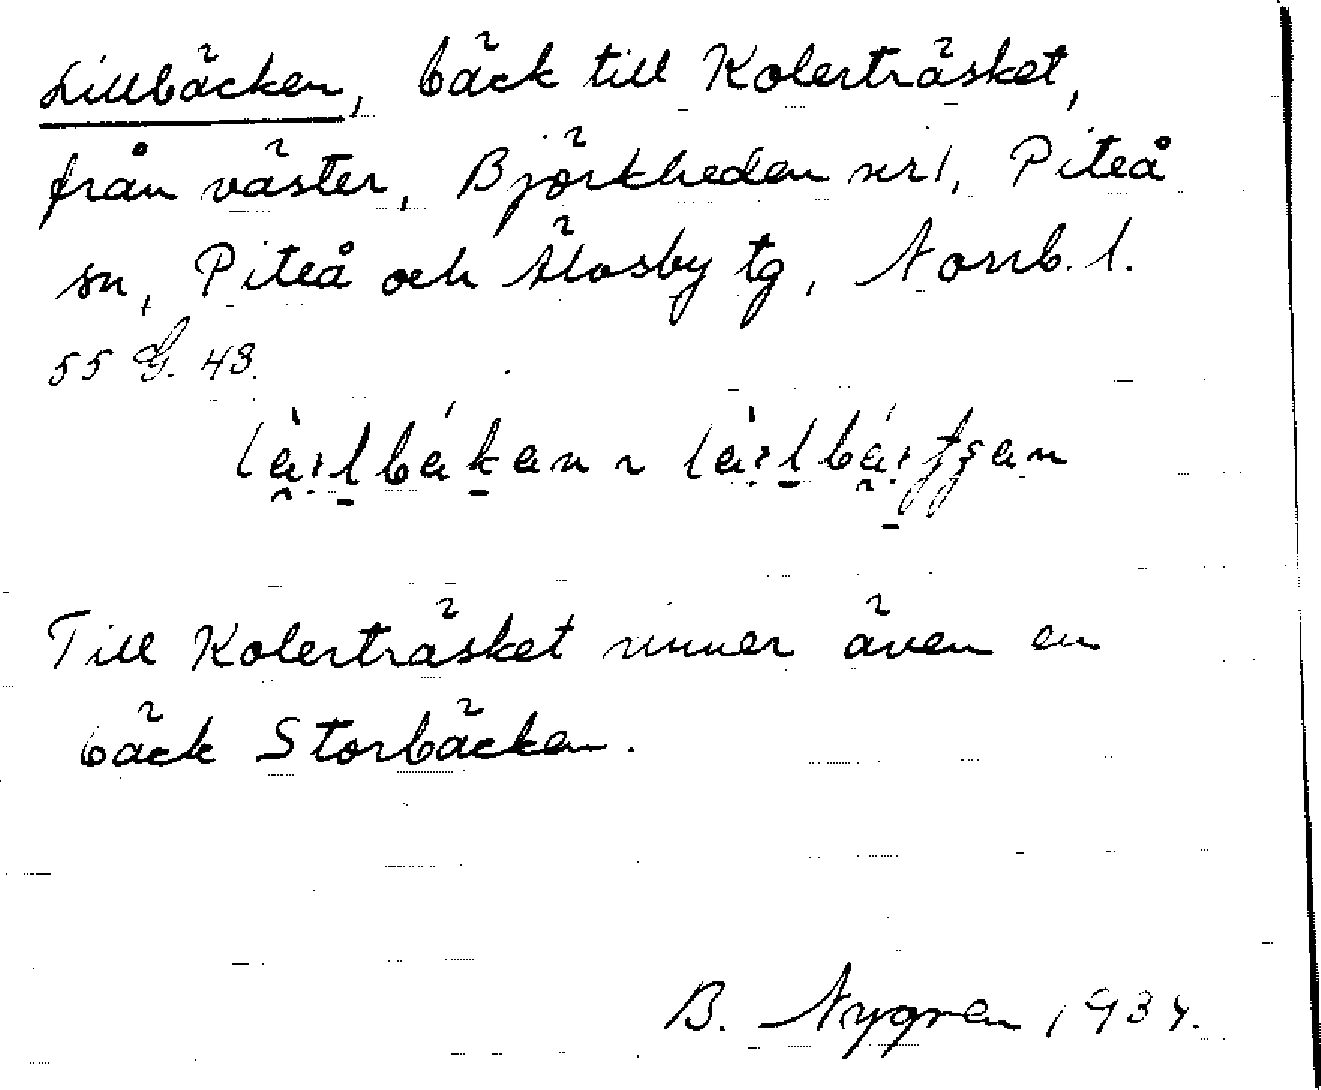 Lillbäcken, bäck till Kolerträsket,
från väster, Björkheden nr 1, Piteå
sn, Piteå och Älvsby tg, Norrb. l.
55 G. 43.
Till Kolerträsket rinner även en
bäck Storbäcken.
B. Nygren 1934.